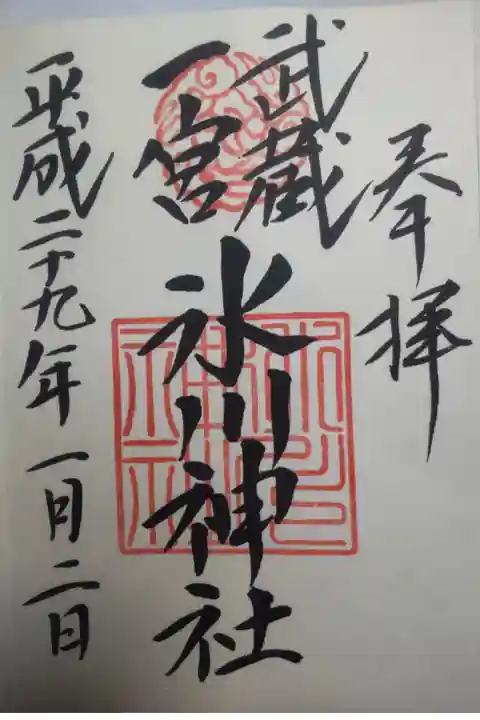 奉拝
武蔵
一宮
氷川神社
平成二十九年一月二日